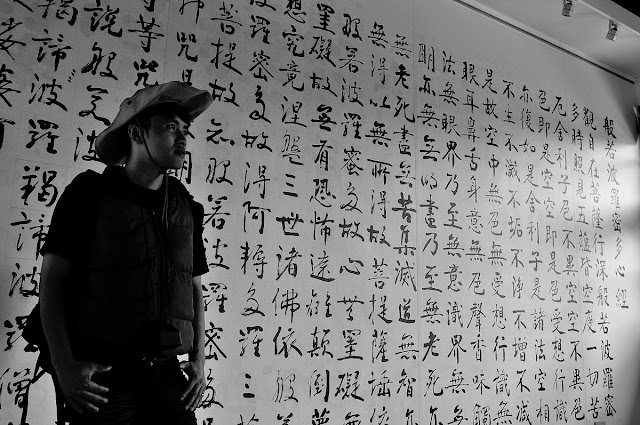 般若波羅密多心經
觀自在菩薩行深般若波羅密
多時照見五蘊皆空度一切苦
厄舍利子色不異空空不異色
色即是空空即是色受想行識
亦復如是舍利子是諸法空相
不生不滅不垢不淨不增不減
是故空中無色無受想行識無
眼耳鼻舌身意無色聲香味觸
法無眼界乃至無意識界無
明亦無無明盡乃至無老死亦
無老死盡無苦集滅道無智亦
無得以無所得故菩提薩埵依
般若波羅密多故心無罣礙
罣礙故無有恐怖遠離顛倒夢
想究竟涅槃三世諸佛依般
波羅密多故得阿耨多羅三
菩提故知般若波羅密多
咒是
明
等等咒
說般若波
羯諦波羅羯諦波羅僧